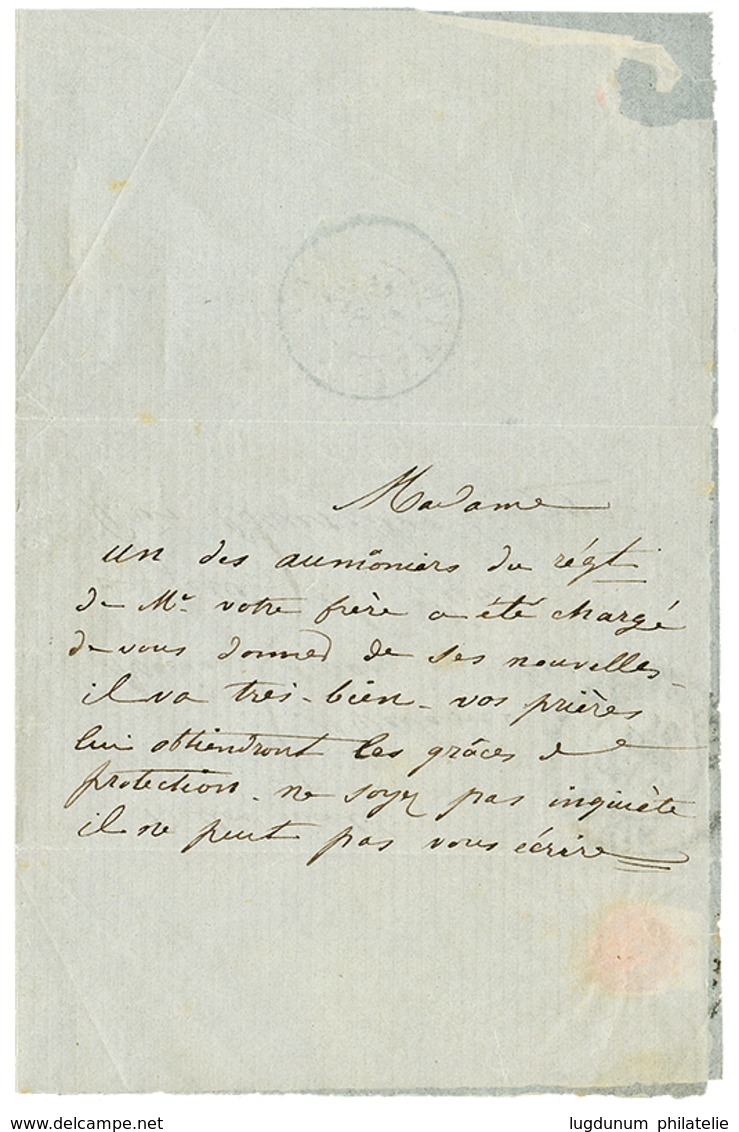 Madame
un des aumôniers du régt
de Mr votre frère a été chargé
de vous donner de ses nouvelles -
il va très-bien - vos prières
lui obtiendront les grâces de
protection - ne soyez pas inquiète
il ne peut pas vous écrire
delcampe.net
lugdunum philatelie